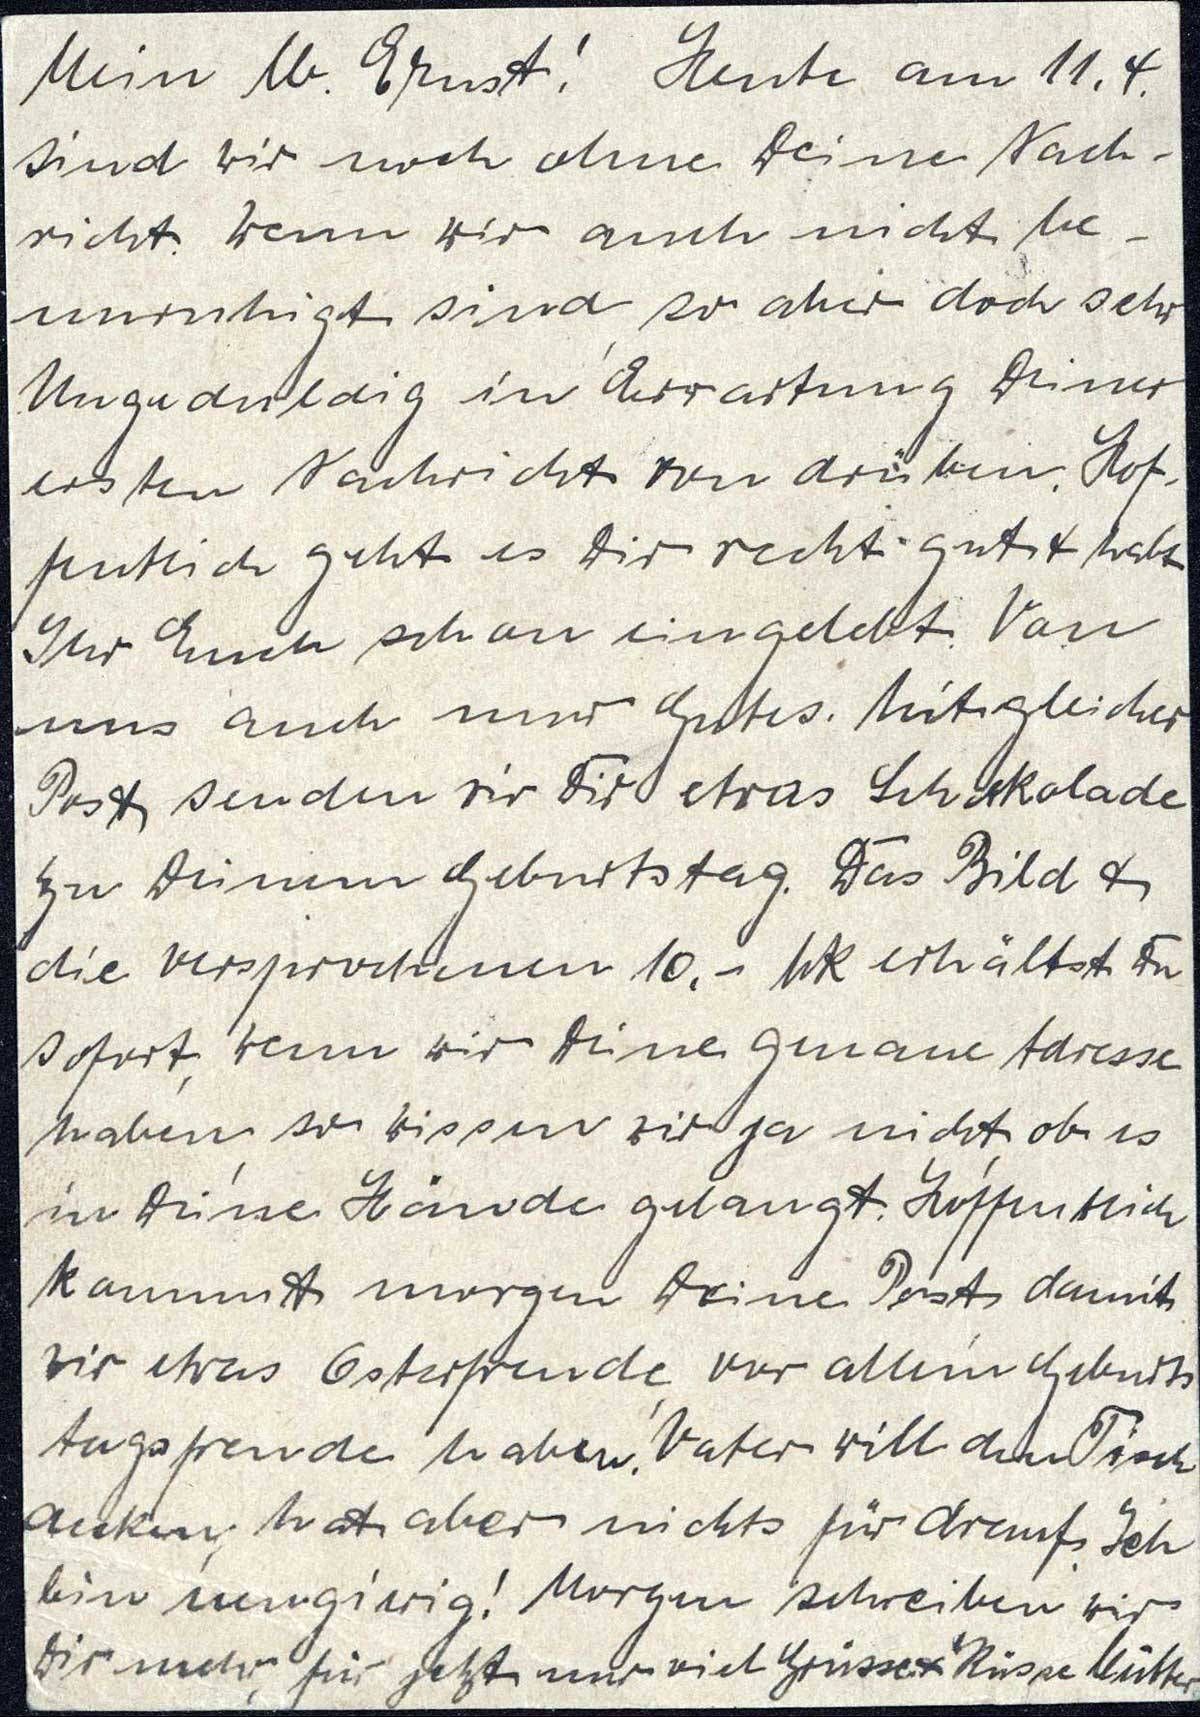 Mein lb. Ernst! Heute am 11.4.
sind wir noch ohne Deine Nach-
richt. Wenn wir auch nicht be-
unruhigt sind, so aber doch sehr
Ungeduldig in Erwartung Deiner
ersten Nachricht von drüben. Hof-
fentlich geht es Dir recht gut & habt
Ihr Euch schon eingelebt. Von
uns auch nur Gutes. Mit gleicher
Post senden wir Dir etwas Schokolade
zu Deinem Geburtstag. Das Bild &
die versprochenen 10.- Mk erhältst Du
sofort, wenn wir Deine genaue Adresse
haben, so wissen wir ja nicht, ob es
in Deine Hände gelangt. Hoffentlich
kommt morgen Deine Post, damit
wir etwas Osterfreude, vor allem Geburts
tagsfreude haben. Vater will den Tisch
decken, hat aber nichts für drauf. Ich
bin neugirig! Morgen schreiben wir
Dir mehr, für jetzt nur viel Grüsse & Küsse Mutter